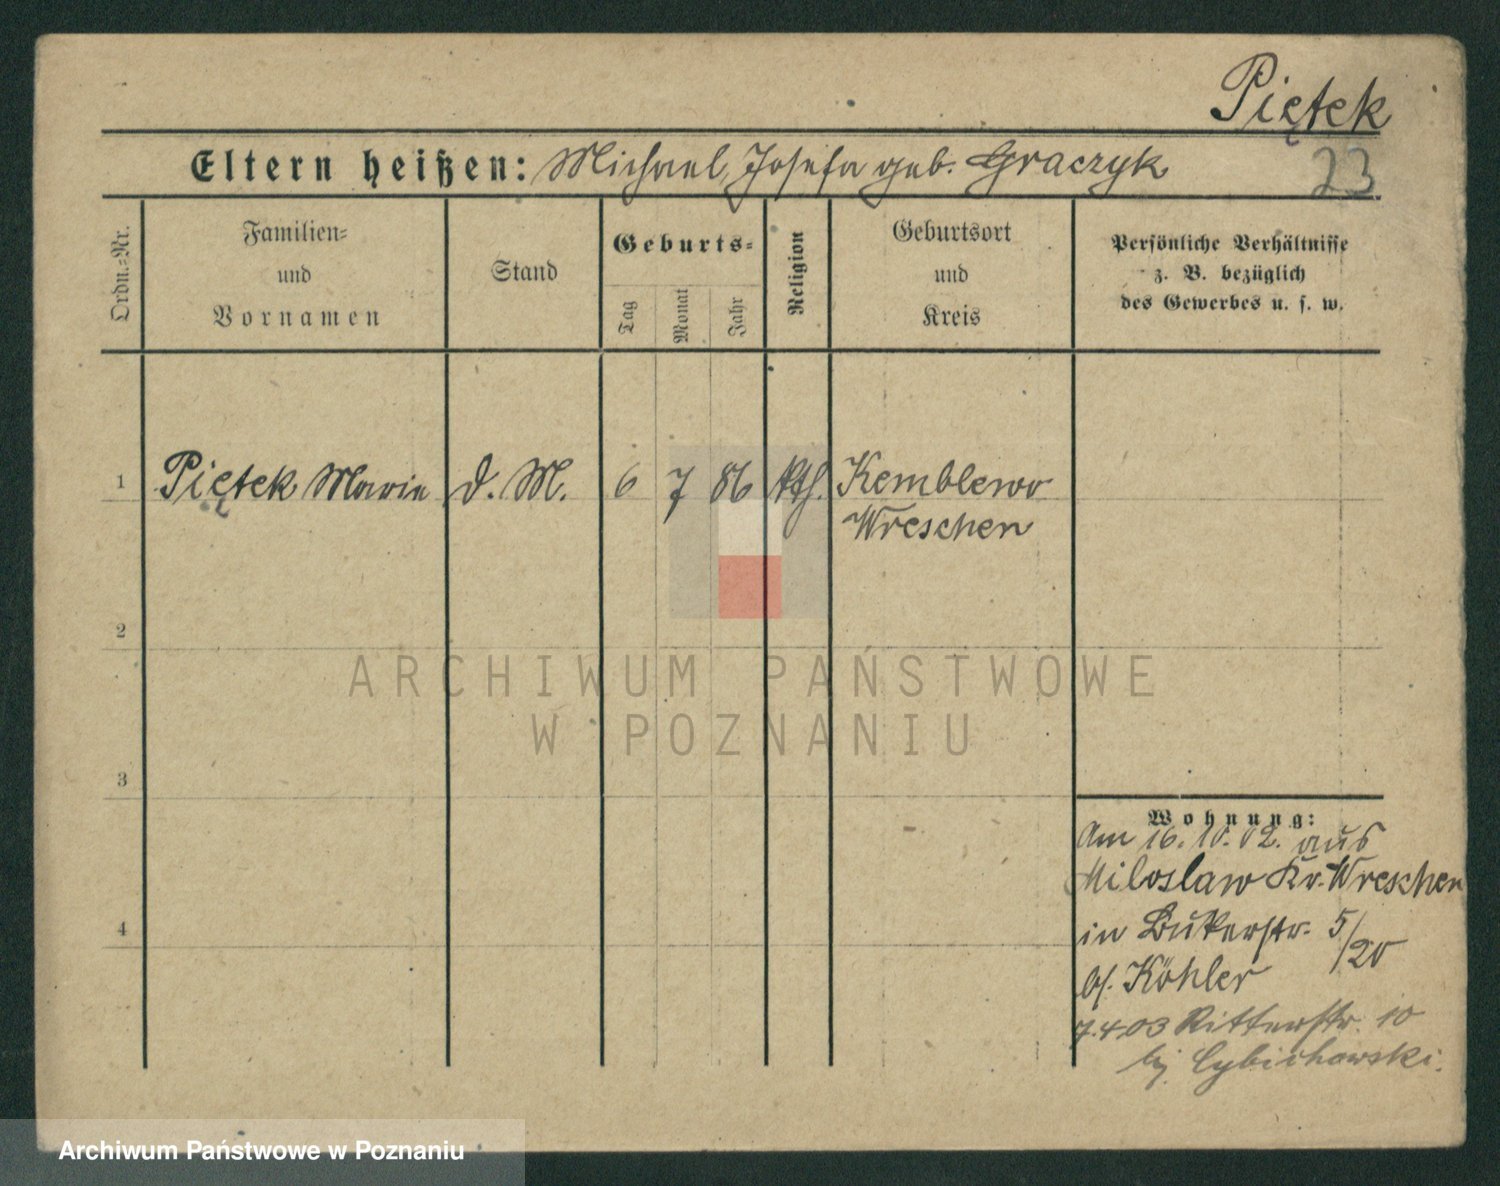 Piętek
Eltern heißen: Michael, Josefa geb. Graczyk
23
Ordn.-Nr.
Familien-
und
Vornamen
Stand
Geburts-
Tag
Monat
Jahr
Religion
Geburtsort
und
Kreis
Persönliche Verhältnisse
z. B. bezüglich
des Gewerbes u. s. w.
1 Piętek Marie d. M. 6 7 86 kth. Kemblewo
Wreschen
2
3
4
Wohnung:
Am 16.10.02. aus
Miloslaw Kr. Wreschen
in Bukerstr. 5/20
bf. Köhler
7.4 03 Ritterstr. 10
bj. Cybichowski.
ARCHIWUM PAŃSTWOWE
W POZNANIU
Archiwum Państwowe w Poznaniu